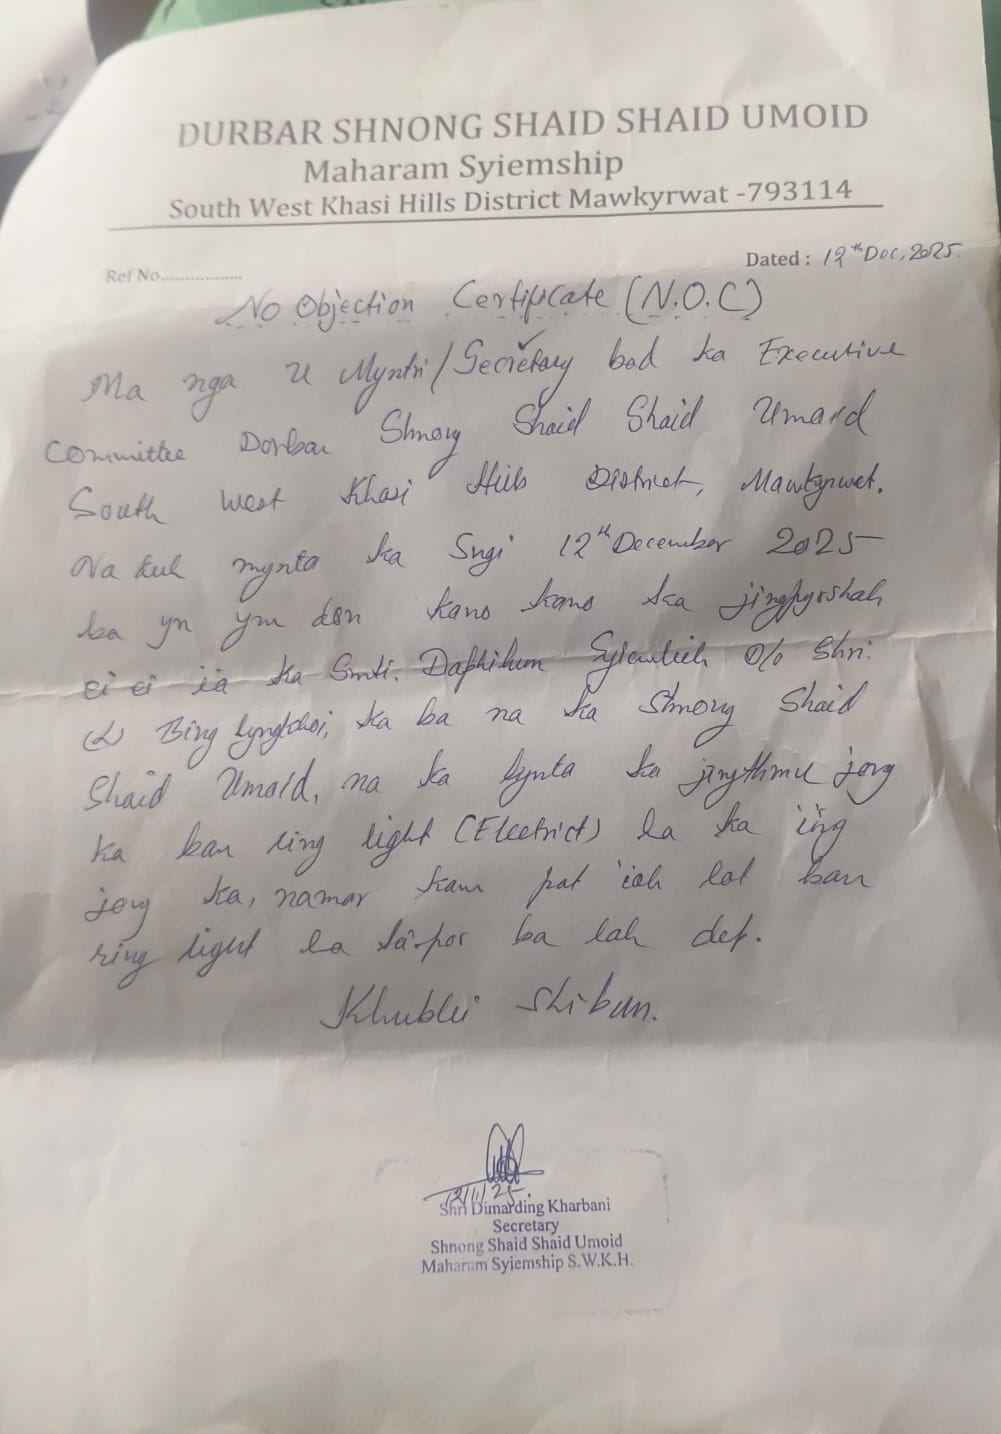 DURBAR SHNONG SHAID SHAID UMOID
Maharam Syiemship
South West Khasi Hills District Mawkyrwat -793114
Ref No.................
Dated : 12th Dec, 2025.
No Objection Certificate (N.O.C)
Ma nga u Myntri/Secretary bad ka Executive
Committee Dorbar Shnong Shaid Shaid Umoid
South West Khasi Hills District, Mawkyrwat.
Na kuh mynta ka Sngi 12th December 2025
ba yn ym don kano kano ka jingpyrshah
ei ei ïa ka Smti. Daphilum Syiemlieh O/o Shri.
(L) Bing Lyngkhoi, ka ba na ka Shnong Shaid
Shaid Umoid, na ka bynta ka jingthmu jong
ka ban ring light (Electrict) la ka ïing
jong ka, namar kam pat ïoh lat ban
ring light ha ka por ba lah dep.
Khublei Shibun.
12/11/25
Shri Dimarding Kharbani
Secretary
Shnong Shaid Shaid Umoid
Maharam Syiemship S.W.K.H.